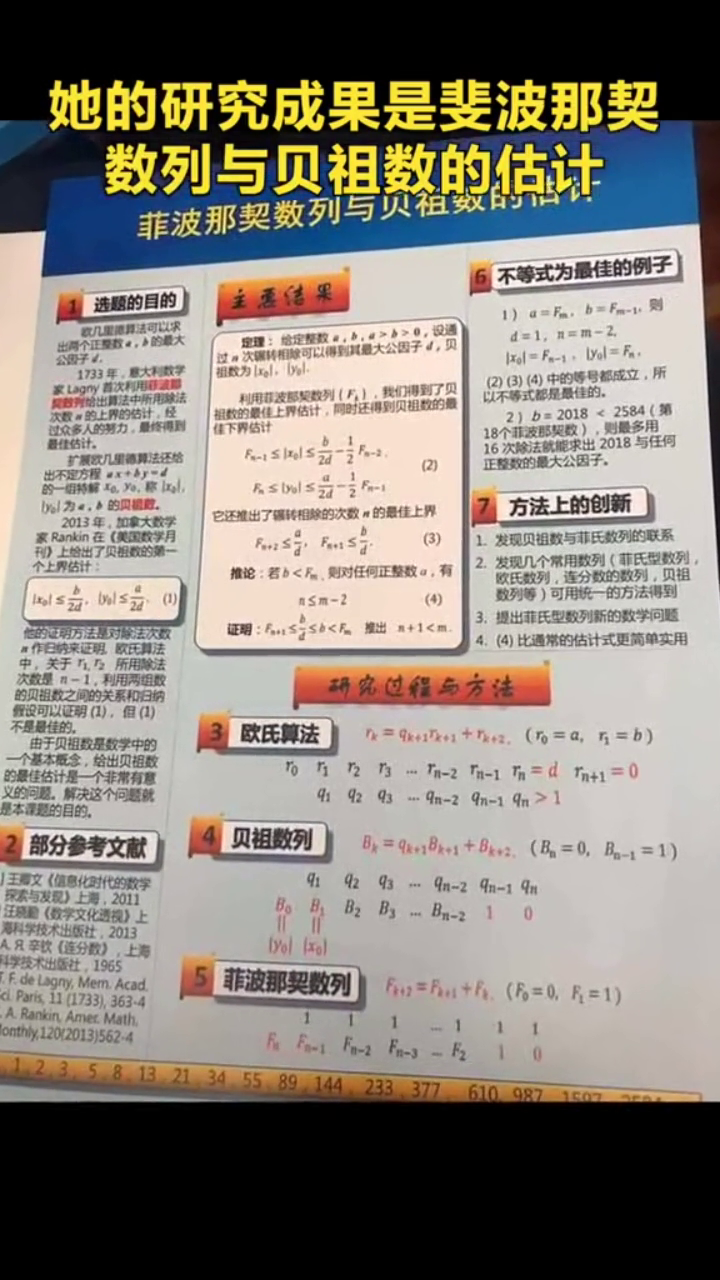 她的研究成果是斐波那契
数列与贝祖数的估计
菲波那契数列与贝祖数的估计
1 选题的目的
欧几里德算法可以求
出两个正整数 a, b 的最大
公因子 d.
1733 年，意大利数学
家 Lagny 首次利用菲波那
契数列给出算法中所用除法
次数 n 的上界的估计，经
过众多人的努力，最终得到
最佳估计。
扩展欧几里德算法还给
出不定方程 ax+by=d
的一组特解 x₀, y₀, 称 |x₀|,
|y₀| 为 a, b 的贝祖数。
2013 年，加拿大数学
家 Rankin 在《美国数学月
刊》上给出了贝祖数的第一
个上界估计：
|x₀| ≤ b/2d, |y₀| ≤ a/2d. (1)
他的证明方法是对除法次数
n 作归纳来证明. 欧氏算法
中，关于 r₁, r₂ 所用除法
次数是 n−1，利用两组数
的贝祖数之间的关系和归纳
假设可以证明 (1)，但 (1)
不是最佳的。
由于贝祖数是数学中的
一个基本概念，给出贝祖数
的最佳估计是一个非常有意
义的问题。解决这个问题就
是本课题的目的。
2 部分参考文献
] 王雁文《信息化时代的数学
探索与发现》上海，2011
汪晓勤《数学文化透视》上
海科学技术出版社，2013
A. Я. 辛钦《连分数》，上海
科学技术出版社，1965
T. F. de Lagny, Mem. Acad.
Sci. Paris, 11 (1733), 363-4
. A. Rankin, Amer. Math.
Monthly,120(2013)562-4
主要结果
定理： 给定整数 a, b, a > b > 0, 设通
过 n 次辗转相除可以得到其最大公因子 d, 贝
祖数为 |x₀|, |y₀|.
利用菲波那契数列（Fₖ），我们得到了贝
祖数的最佳上界估计，同时还得到贝祖数的最
佳下界估计
Fₙ₋₁ ≤ |x₀| ≤ b/2d − 1/2 Fₙ₋₂,
(2)
Fₙ ≤ |y₀| ≤ a/2d − 1/2 Fₙ₋₁
它还推出了辗转相除的次数 n 的最佳上界
Fₙ₊₂ ≤ a/d, Fₙ₊₁ ≤ b/d. (3)
推论：若 b < Fₘ, 则对任何正整数 a, 有
n ≤ m − 2 (4)
证明：Fₙ₊₁ ≤ b/d ≤ b < Fₘ 推出 n+1 < m.
6 不等式为最佳的例子
1） a = Fₘ, b = Fₘ₋₁, 则
d = 1, n = m − 2,
|x₀| = Fₙ₋₁, |y₀| = Fₙ,
(2) (3) (4) 中的等号都成立，所
以不等式都是最佳的。
2）b = 2018 < 2584（第
18个菲波那契数），则最多用
16 次除法就能求出 2018 与任何
正整数的最大公因子。
7 方法上的创新
1. 发现贝祖数与菲氏数列的联系
2. 发现几个常用数列（菲氏型数列，
欧氏数列，连分数的数列，贝祖
数列等）可用统一的方法得到
3. 提出菲氏型数列新的数学问题
4. (4) 比通常的估计式更简单实用
研究过程与方法
3 欧氏算法 rₖ = qₖ₊₁rₖ₊₁ + rₖ₊₂. (r₀ = a, r₁ = b)
r₀ r₁ r₂ r₃ ... rₙ₋₂ rₙ₋₁ rₙ = d rₙ₊₁ = 0
q₁ q₂ q₃ ... qₙ₋₂ qₙ₋₁ qₙ > 1
4 贝祖数列 Bₖ = qₖ₊₁Bₖ₊₁ + Bₖ₊₂. (Bₙ = 0, Bₙ₋₁ = 1)
q₁ q₂ q₃ ... qₙ₋₂ qₙ₋₁ qₙ
B₀ B₁ B₂ B₃ ... Bₙ₋₂ 1 0
|| ||
|y₀| |x₀|
5 菲波那契数列 Fₖ₊₂ = Fₖ₊₁ + Fₖ. (F₀ = 0, F₁ = 1)
1 1 1 ... 1 1 1
Fₙ Fₙ₋₁ Fₙ₋₂ Fₙ₋₃ ... F₂ 1 0
, 1, 2, 3, 5, 8, 13, 21, 34, 55, 89, 144, 233, 377, 610, 987, 1597, 2584